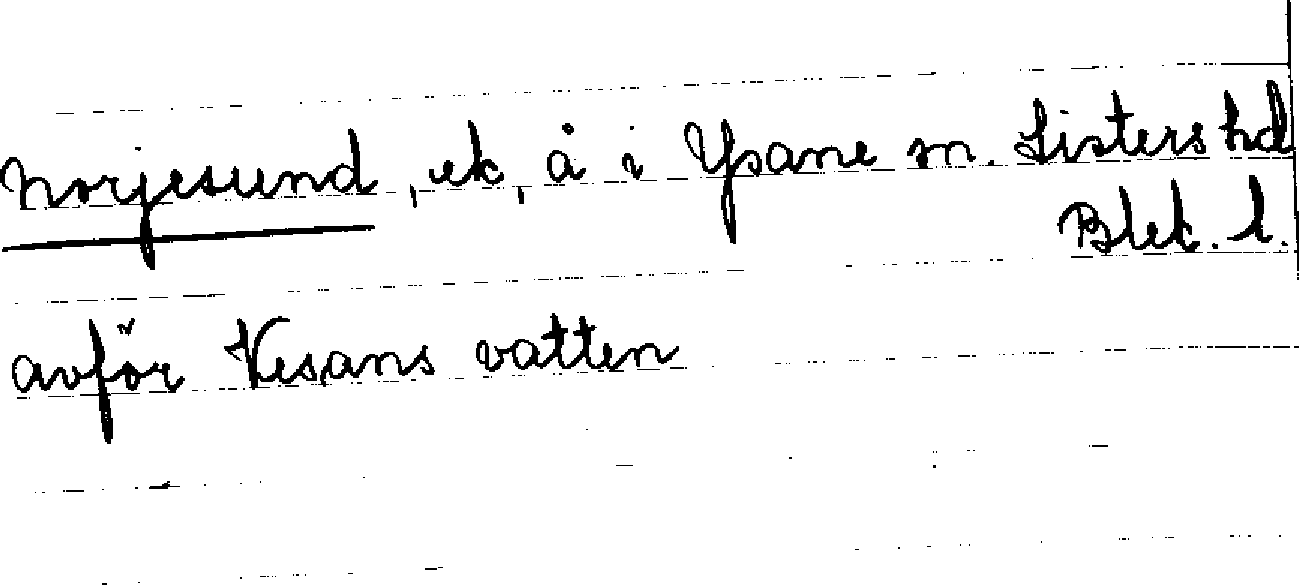 Norjesund, ek, å i Ysane sn. Listers hd
Blek. l.
avför Vesans vatten